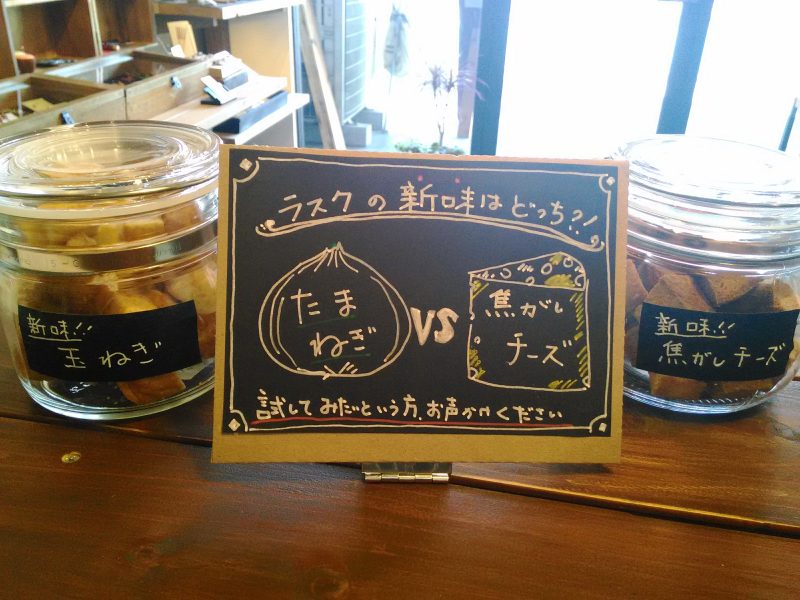 ラスクの新味はどっち?!
たま
ねぎ
VS
焦がし
チーズ
試してみたいという方、お声がけください
新味!!
玉ねぎ
新味!!
焦がしチーズ